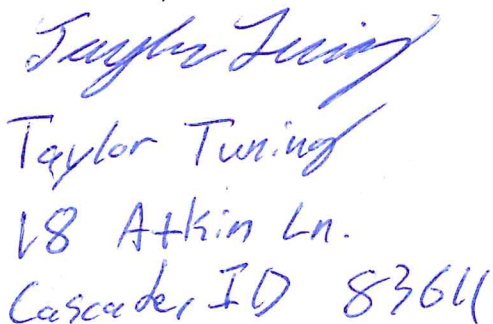 Taylor Tuning
Taylor Tuning
18 Atkin Ln.
Cascade, ID 83611